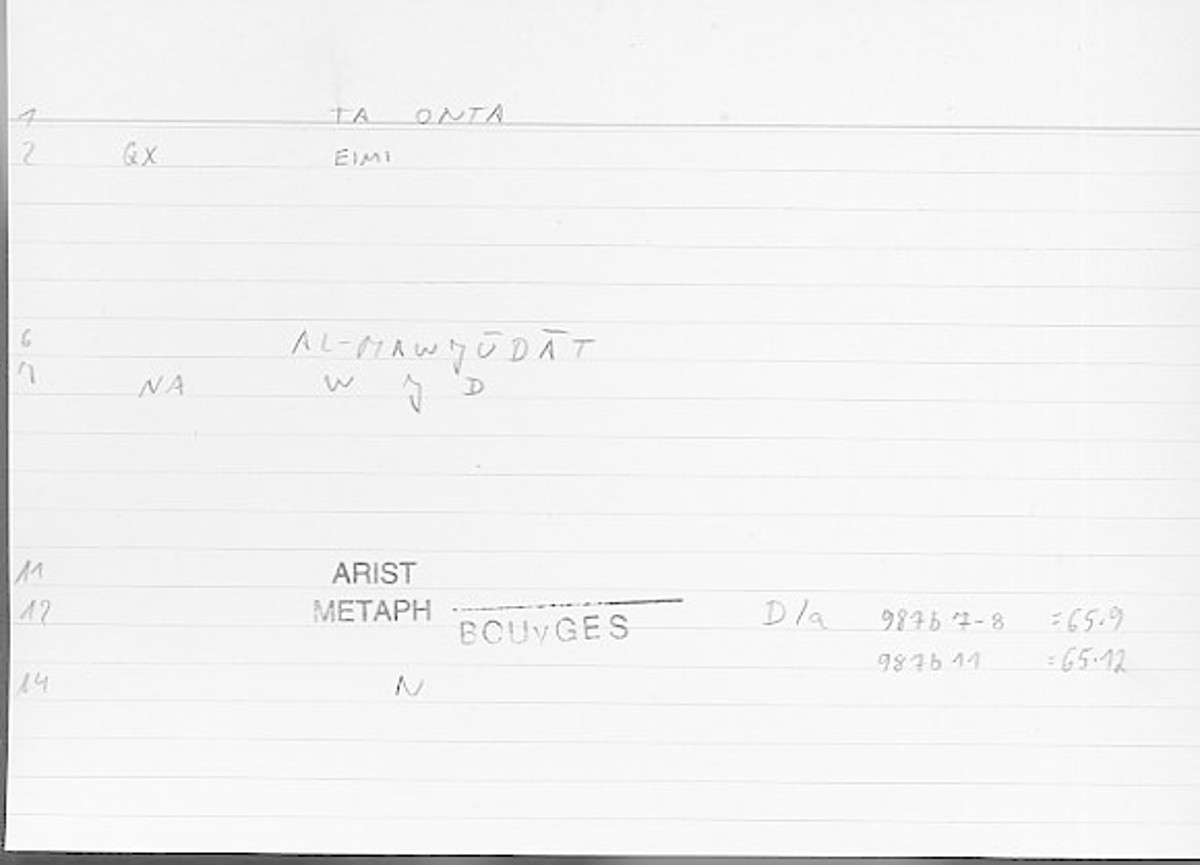 1 TA ONTA
2 GX EIMI
6 AL-MAWJŪDĀT
7 NA W J D
11 ARIST
12 METAPH BOUYGES D/a 987b 7-8 =65.9
987b 11 =65.12
14 N